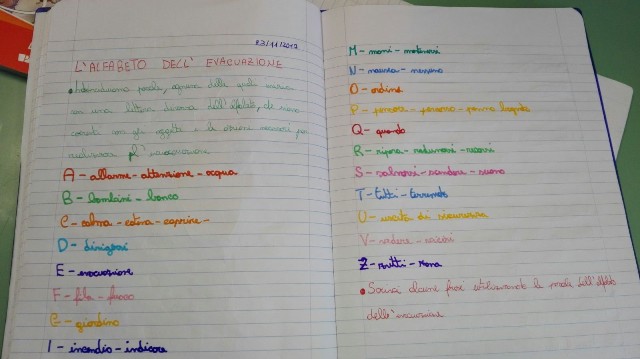 23/11/2017
L'ALFABETO DELL'EVACUAZIONE
parole, ognuna delle quali inizia
con una lettera diversa dell'alfabeto, che siano
con gli oggetti e le azioni necessari per
l'evacuazione
A - allarme - attenzione - acqua
B - bambini - banco
C - calma - catena - coprire -
D - dirigersi
E - evacuazione
F - fila - fuoco
G - giardino
I - incendio - indicare
M - mani - mettersi
N - nessuno
O - ordine
P - percorso
Q - quando
R - riparo - radunarsi
S - salvarsi - suono
T - tutti - terremoto
U - uscita di sicurezza
V
Z - zitti - zona
• Scrivi alcune frasi utilizzando le parole dell'alfabeto
dell'evacuazione